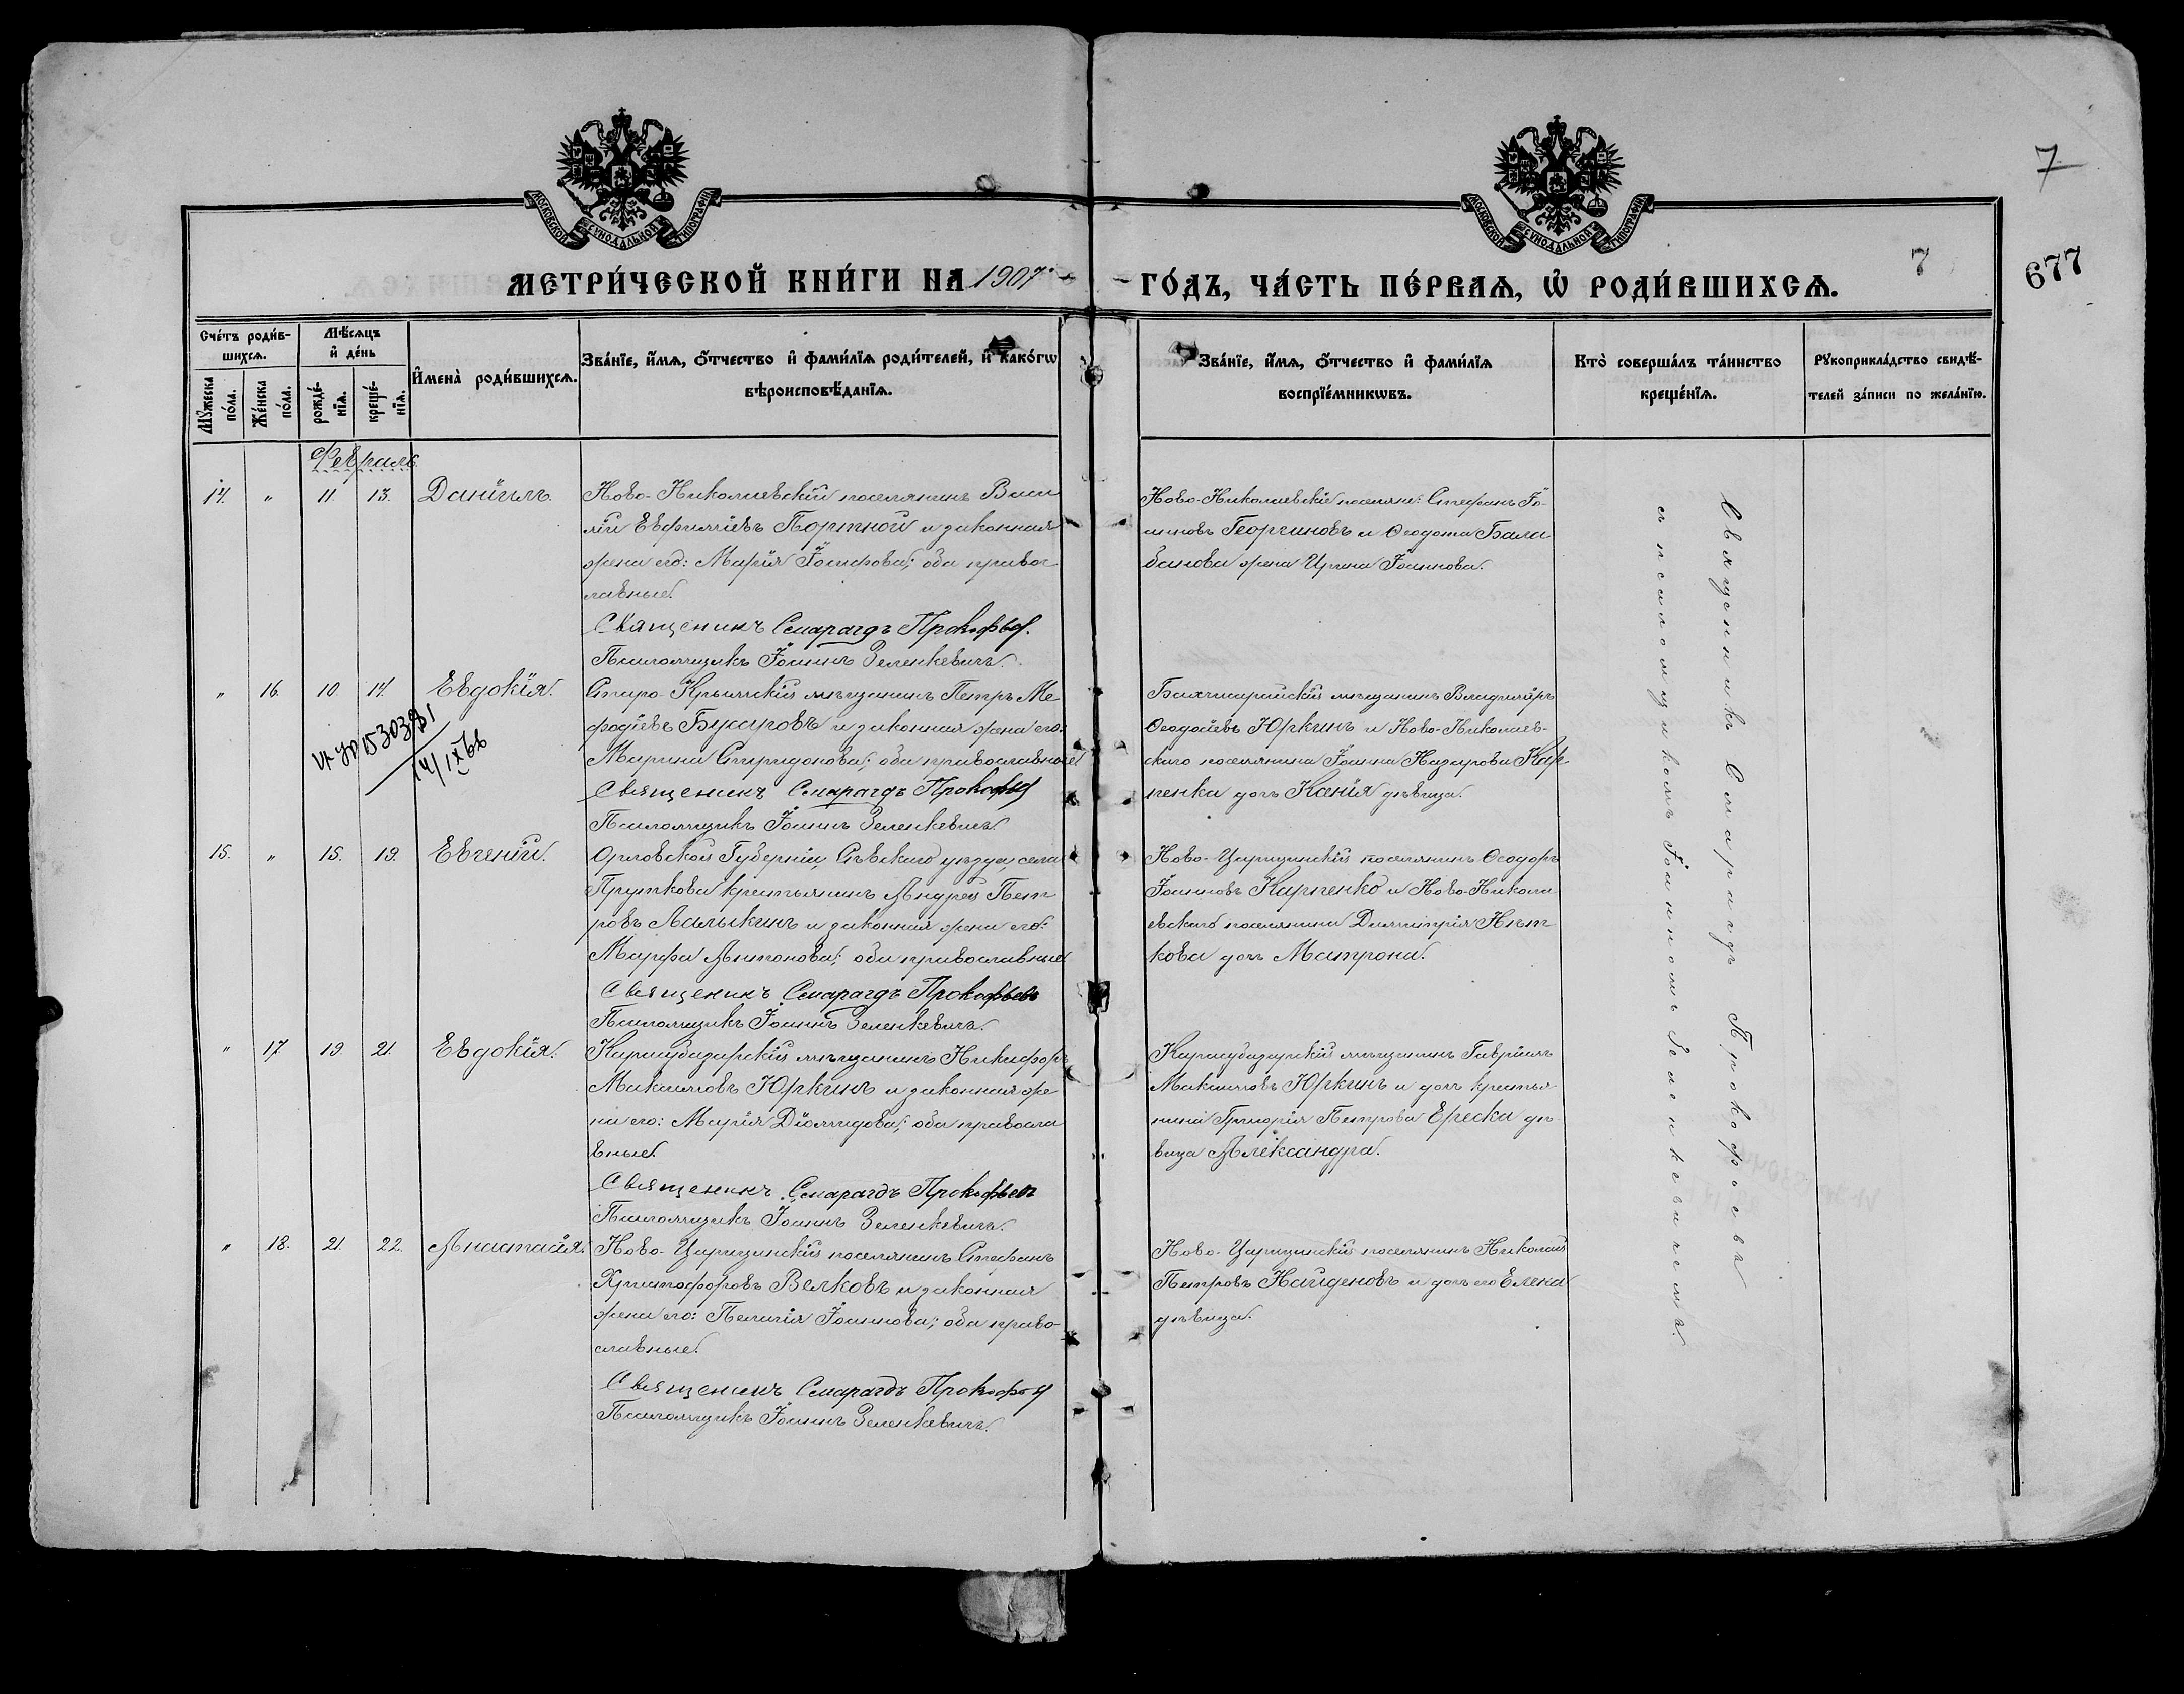 7
7
677
МОСКОВСКОЙ СѴНОДАЛЬНОЙ ТИПОГРАФІИ
МОСКОВСКОЙ СѴНОДАЛЬНОЙ ТИПОГРАФІИ
МЕТРИ́ЧЕСКОЙ КНИ́ГИ НА 1907
ГО́ДЪ, ЧА́СТЬ ПЕ́РВАѦ, Ѡ҆ РОДИ́ВШИХСѦ.
Сче́тъ роди́в-
шихсѧ.
Мѣ́сѧцъ
и҆ де́нь
Мꙋ́жеска
по́ла.
Же́нска
по́ла.
рожде́-
нїѧ.
креще́-
нїѧ.
И҆мена̀ роди́вшихсѧ.
Зва́нїе, и҆́мѧ, ѻ҆́тчество и҆ фами́лїѧ роди́телей, и҆ како́гѡ
вѣроисповѣ́данїѧ.
Зва́нїе, и҆́мѧ, ѻ҆́тчество и҆ фами́лїѧ
воспрїе́мникѡвъ.
Кто̀ соверша́лъ та́инство
креще́нїѧ.
Рꙋкоприкла́дство свидѣ́-
телей за́писи по жела́нїю.
Февраль.
14. " 11. 13. Даніилъ.
Ново-Николаевскій поселянинъ Васи
лій Евфиміевъ Портной и законная
жена его: Марія Іосифова; оба правос
лавные.
Священикъ Смарагдъ Прокофьев.
Псаломщикъ Іоаннъ Зеленкевичъ.
Ново-Николаевскіе поселяне: Стефанъ Іо-
анновъ Георгиновъ и Ѳеодота Бала
банова жена Ирина Іоаннова.
" 16. 10. 14. Евдокія.
Старо-Крымскій мѣщанинъ Петръ Ме
фодіевъ Бушуровъ и законная жена его:
Марина Спиридонова; оба православные.
Священикъ Смарагдъ Прокофьев
Псаломщикъ Іоаннъ Зеленкевичъ.
14/IX 66
Бахчисарайскій мѣщанинъ Владиміръ
Ѳеодосіевъ Юркинъ и Ново-Николаев-
скаго поселянина Іоанна Назарова Кар
пенка дочь Ксенія дѣвица.
15. " 15. 19. Евгеній.
Орловской Губерніи, Сѣвскаго уѣзда, села
Пруткова крестьянинъ Андрей Пет
ровъ Лалыкинъ и законная жена его:
Марфа Антонова; оба православные.
Священикъ Смарагдъ Прокофьевъ
Псаломщикъ Іоаннъ Зеленкевичъ.
Ново-Царицынскій поселянинъ Ѳеодоръ
Іоанновъ Карпенко и Ново-Никола
евскаго поселянина Димитрія Нѣт
кова дочь Матрона.
" 17. 19. 21. Евдокія.
Карасубазарскій мѣщанинъ Никифоръ
Максимовъ Юркинъ и законная же
на его: Марія Діомидова; оба правосла
вные.
Священикъ Смарагдъ Прокофьевъ
Псаломщикъ Іоаннъ Зеленкевичъ.
Карасубазарскій мѣщанинъ Гавріилъ
Максимовъ Юркинъ и дочь крестья
нина Григорія Петрова Ереска дѣ
вица Александра.
" 18. 21. 22. Анастасія.
Ново-Царицынскій поселянинъ Стефанъ
Христофоровъ Велковъ и законная
жена его: Пелагія Іоаннова; оба право-
славные.
Священикъ Смарагдъ Прокофьев
Псаломщикъ Іоаннъ Зеленкевичъ.
Ново-Царицынскій поселянинъ Николай
Петровъ Найденовъ и дочь его Елена
дѣвица.
Священникъ Смарагдъ Прокофьевъ
съ псаломщикомъ Іоанномъ Зеленкевичемъ.